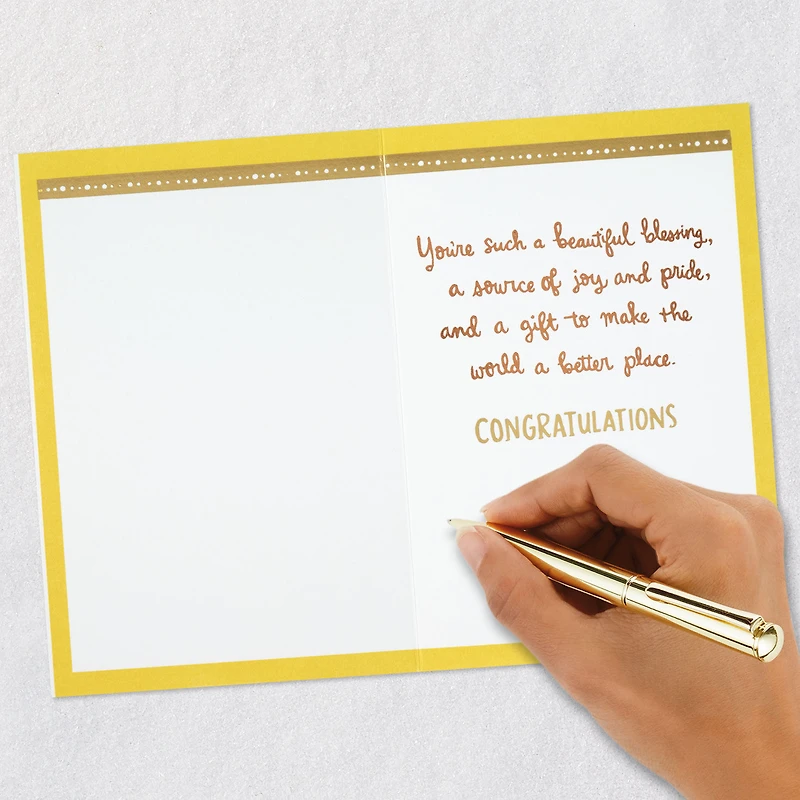 You're such a beautiful blessing,
a source of joy and pride,
and a gift to make the
world a better place.
CONGRATULATIONS